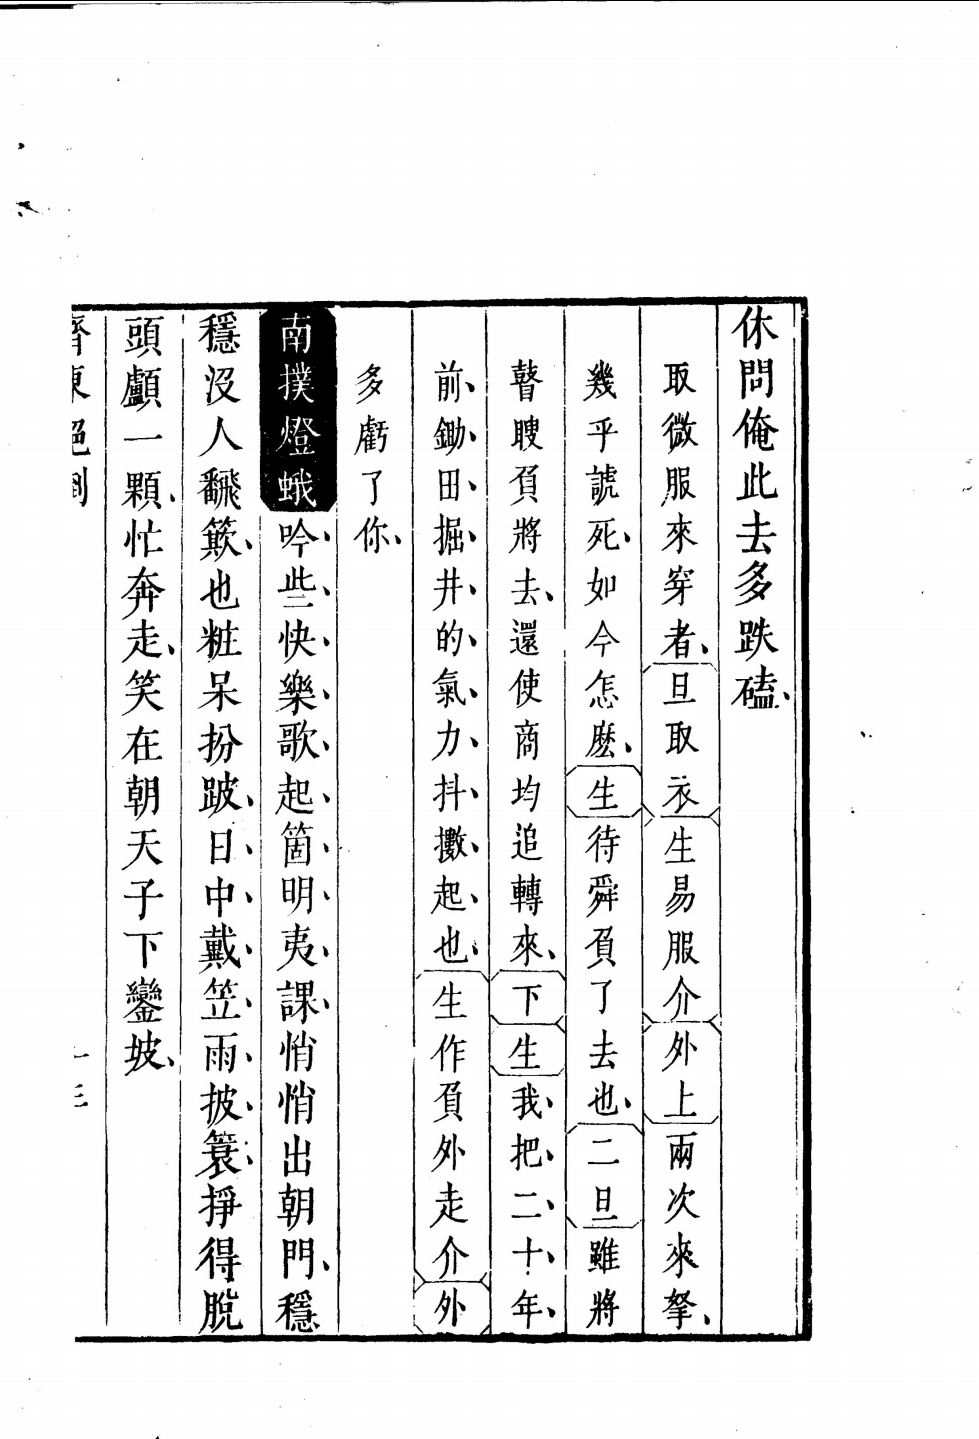 休問俺此去多跌磕、
取微服來穿者、旦取衣生易服介外上兩次來拏、
幾乎諕死、如今怎麽、生待舜負了去也、二旦雖將
瞽瞍負將去、還使商均追轉來、下生我、把、二、十、年、
前、鋤、田、掘、井、的、氣、力、抖、擻、起、也、生作負外走介外
多虧了你、
南撲燈蛾吟、些、快、樂、歌、起、箇、明、夷、課、悄悄出朝門、穩
穩沒人飜簸、也粧呆扮跛、日、中、戴、笠、雨、披、簑、掙得脫
頭顱一顆、忙奔走、笑在朝天子下鑾坡、
齊東絕倒